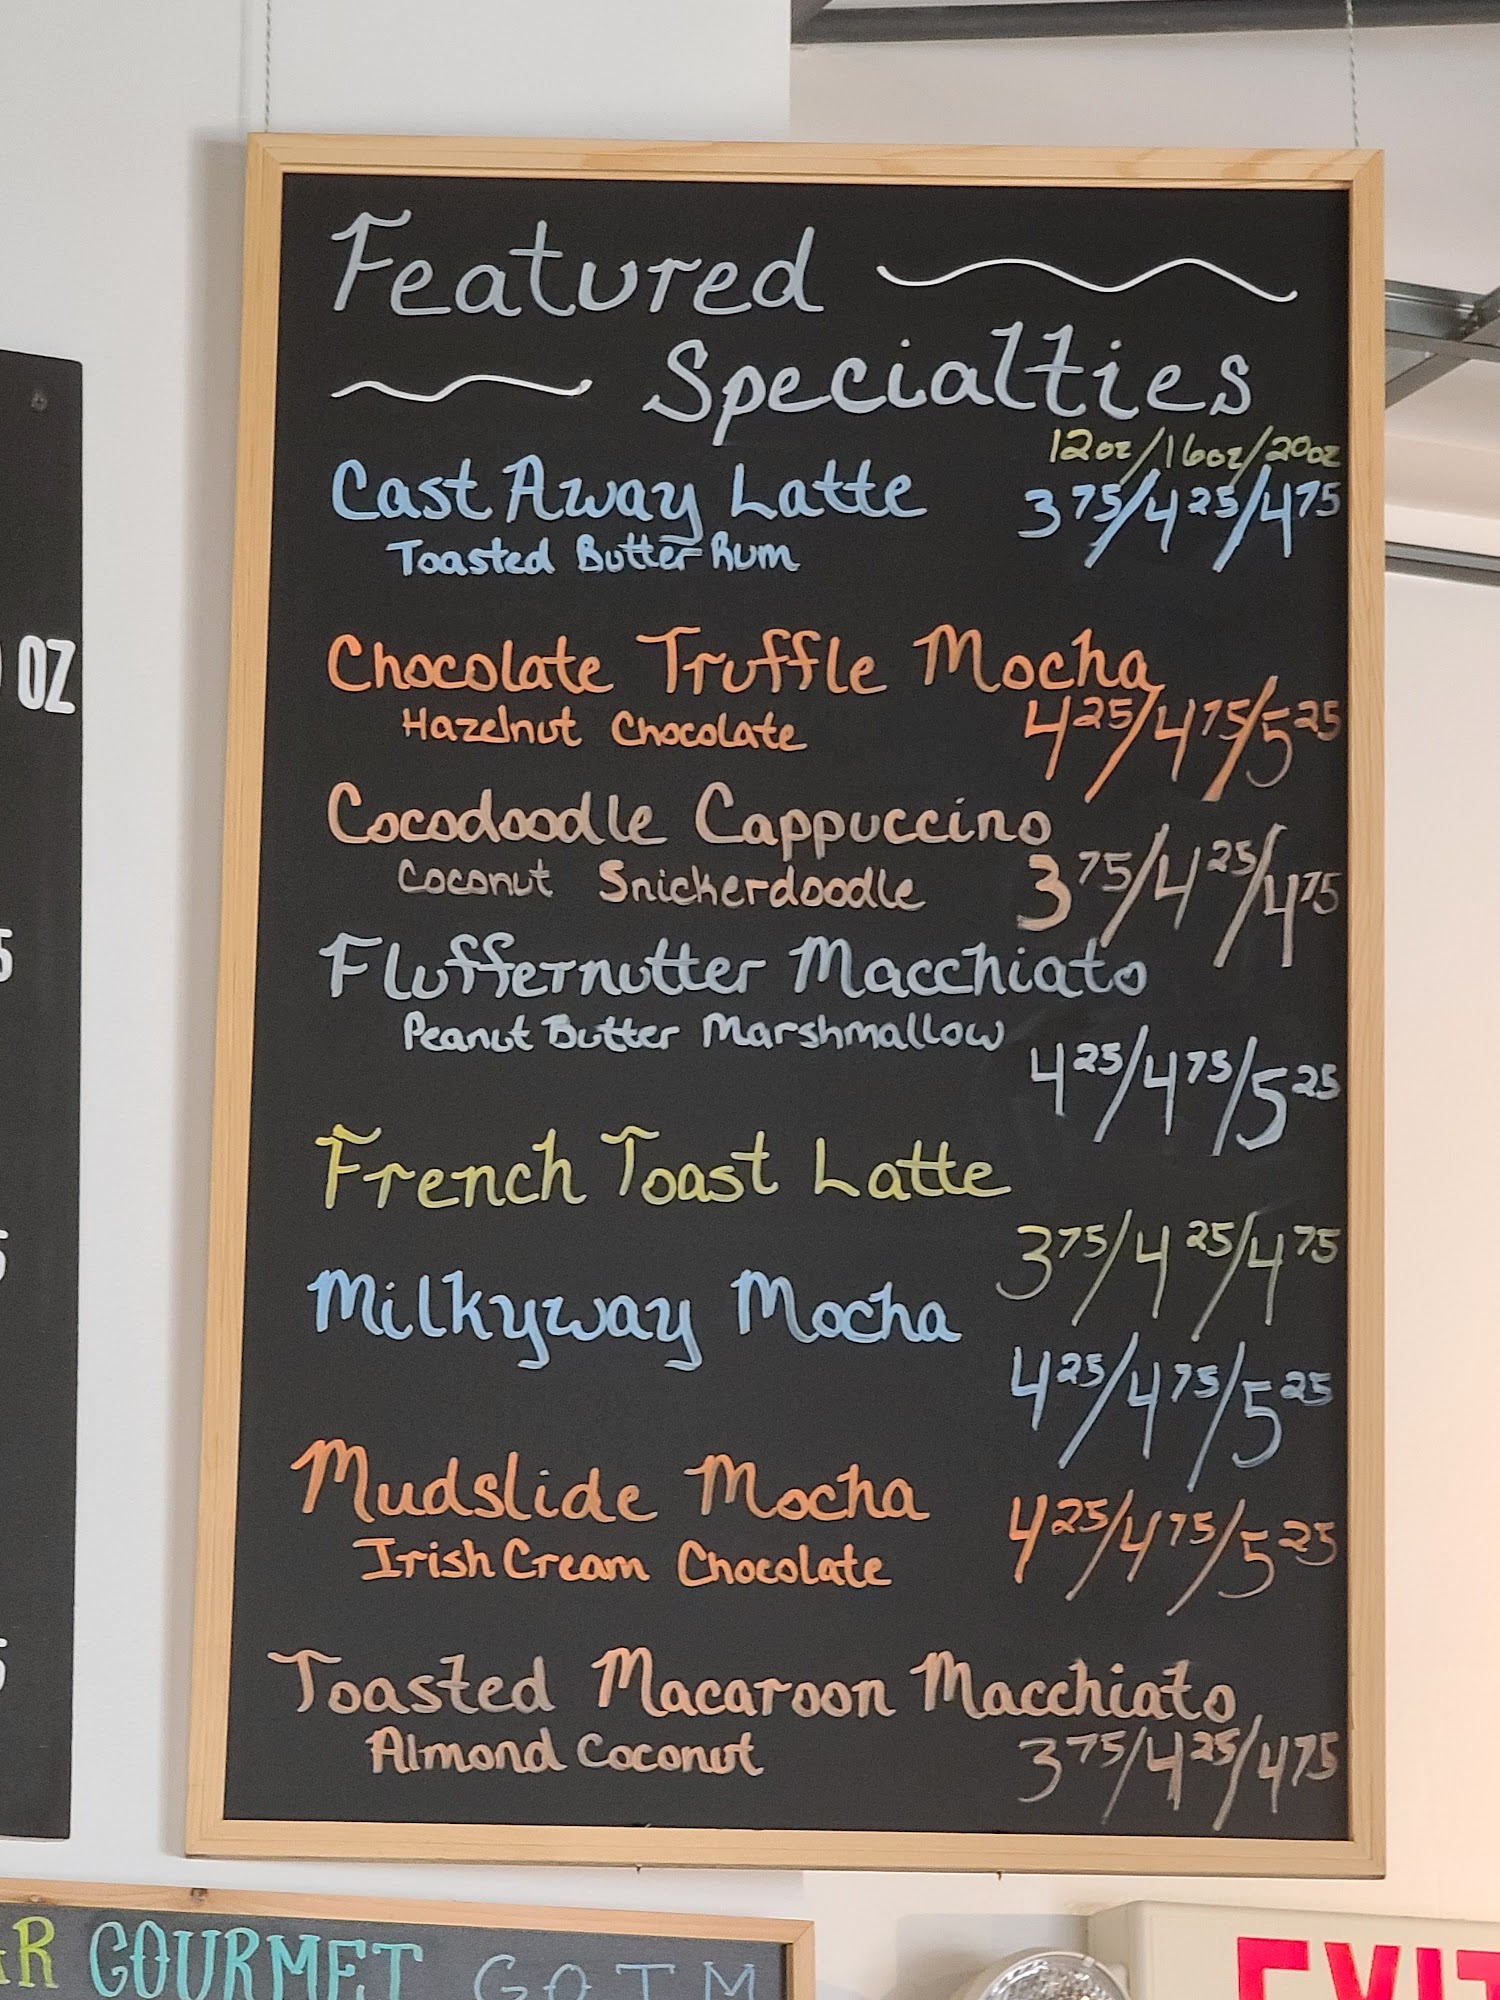 Featured
Specialties
12oz/16oz/20oz
Cast Away Latte 3 75/4 25/4 75
Toasted Butter Rum
Chocolate Truffle Mocha
Hazelnut Chocolate 4 25/4 75/5 25
Cocodoodle Cappuccino
Coconut Snickerdoodle 3 75/4 25/4 75
Fluffernutter Macchiato
Peanut Butter Marshmallow
4 25/4 75/5 25
French Toast Latte
3 75/4 25/4 75
Milkyway Mocha
4 25/4 75/5 25
Mudslide Mocha 4 25/4 75/5 25
Irish Cream Chocolate
Toasted Macaroon Macchiato
Almond Coconut 3 75/4 25/4 75
OZ
5
5
5
GOURMET GOTM
EXIT